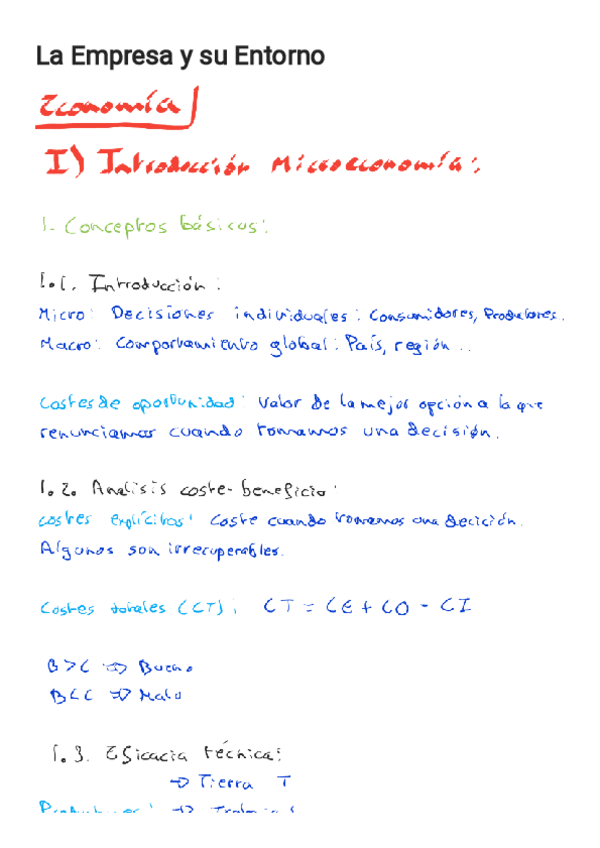 La Empresa y su Entorno
Economía
I) Introducción Microeconomía:
1. Conceptos básicos:
1.1. Introducción:
Micro: Decisiones individuales: Consumidores, Productores.
Macro: Comportamiento global: País, región...
Costes de oportunidad: Valor de la mejor opción a la que
renunciamos cuando tomamos una decisión.
1.2. Analisis coste-beneficio:
Costes explícitos: Coste cuando tomamos una decición.
Algunos son irrecuperables.
Costes totales (CT): CT = CE + CO - CI
B>C ⇒ Bueno
B<C ⇒ Malo
1.3. Eficacia técnica:
→ Tierra T